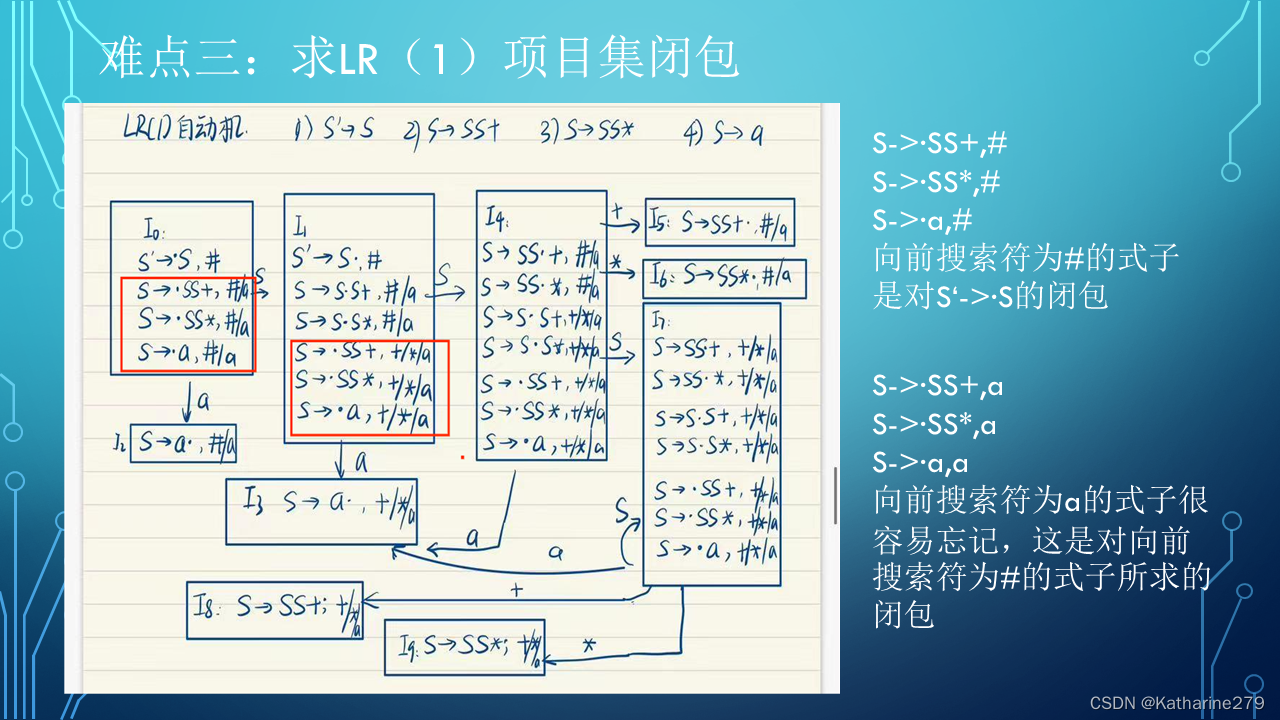 难点三：求LR（1）项目集闭包
LR(1)自动机. 1) S'→S 2) S→SS+ 3) S→SS* 4) S→a
I0:
S'→·S, #
S→·SS+, #/a
S→·SS*, #/a
S→·a, #/a
S
a
I2 S→a·, #/a
I1
S'→S·, #
S→S·S+, #/a
S→S·S*, #/a
S→·SS+, +/*/a
S→·SS*, +/*/a
S→·a, +/*/a
S
a
I3 S→a·, +/*/a
I4:
S→SS·+, #/a
S→SS·*, #/a
S→S·S+, +/*/a
S→S·S*, +/*/a
S→·SS+, +/*/a
S→·SS*, +/*/a
S→·a, +/*/a
+
*
S
a
I5: S→SS+·, #/a
I6: S→SS*·, #/a
I7:
S→SS·+, +/*/a
S→SS·*, +/*/a
S→S·S+, +/*/a
S→S·S*, +/*/a
S→·SS+, +/*/a
S→·SS*, +/*/a
S→·a, +/*/a
S
a
+
*
I8: S→SS+; +/*/a
I9: S→SS*; +/*/a
S->·SS+,#
S->·SS*,#
S->·a,#
向前搜索符为#的式子
是对S‘->·S的闭包
S->·SS+,a
S->·SS*,a
S->·a,a
向前搜索符为a的式子很
容易忘记，这是对向前
搜索符为#的式子所求的
闭包
CSDN @Katharine279